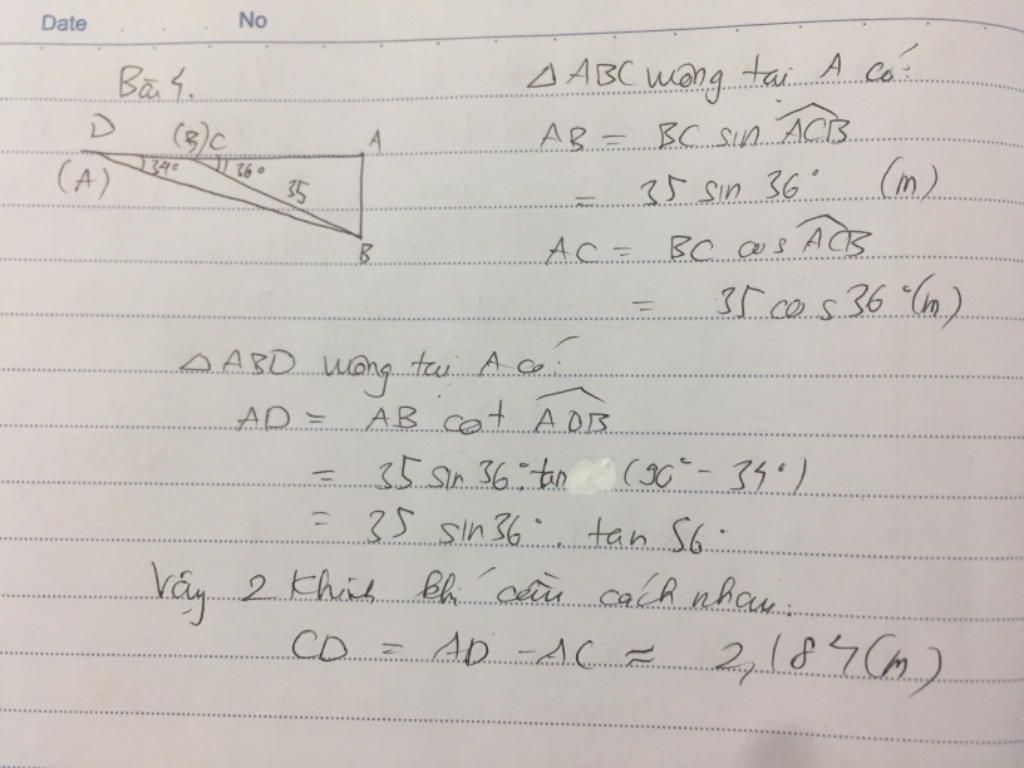 Date No
Bài 4.
D (B) C A
(A) 34° 36° 35
B
△ABC vuông tại A có:
AB = BC sin ACB
= 35 sin 36° (m)
AC = BC cos ACB
= 35 cos 36° (m)
△ABD vuông tại A có:
AD = AB cot ADB
= 35 sin 36°. tan (90° - 34°)
= 35 sin 36°. tan 56°
Vậy 2 khinh khí cầu cách nhau:
CD = AD - AC ≈ 2,184 (m)